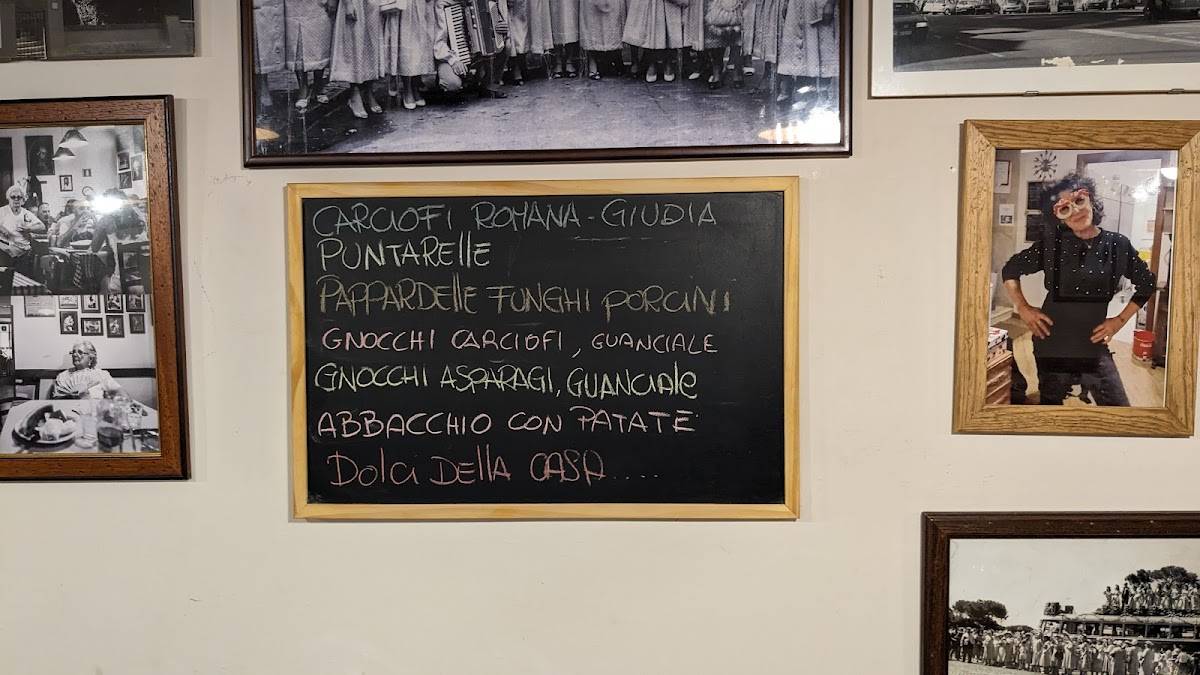 CARCIOFI ROMANA - GIUDIA
PUNTARELLE
PAPPARDELLE FUNGHI PORCINI
GNOCCHI CARCIOFI, GUANCIALE
GNOCCHI ASPARAGI, GUANCIALE
ABBACCHIO CON PATATE
DOLCI DELLA CASA....